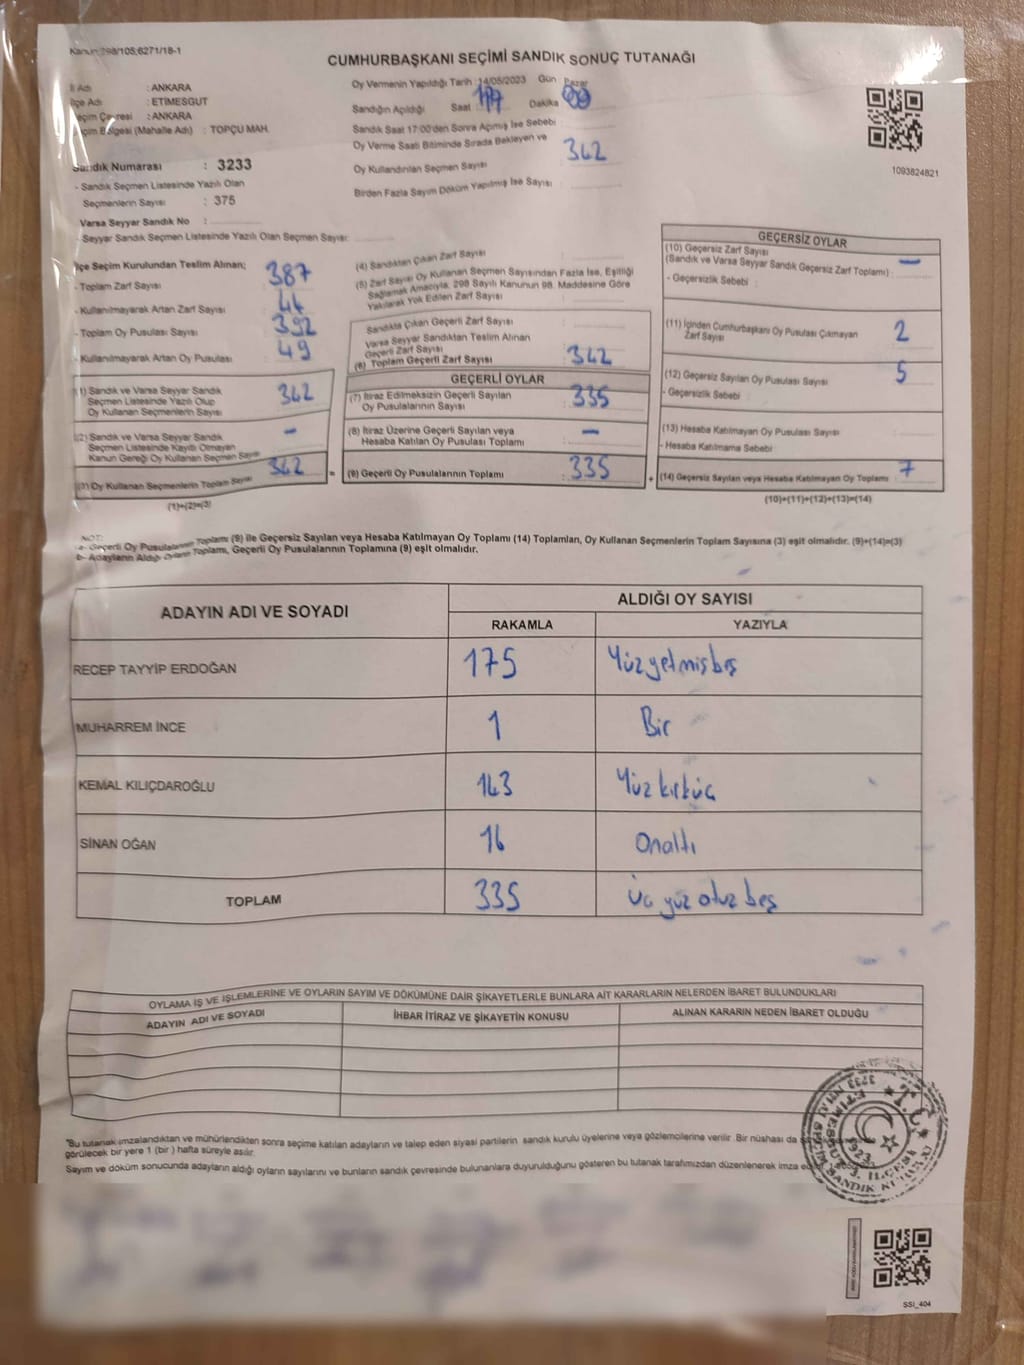 Kanun:298/105;6271/18-1
CUMHURBAŞKANI SEÇİMİ SANDIK SONUÇ TUTANAĞI
İl Adı : ANKARA
İlçe Adı : ETIMESGUT
Seçim Çevresi : ANKARA
Seçim Bölgesi (Mahalle Adı) : TOPÇU MAH.
Sandık Numarası : 3233
- Sandık Seçmen Listesinde Yazılı Olan
Seçmenlerin Sayısı : 375
Varsa Seyyar Sandık No :
- Seyyar Sandık Seçmen Listesinde Yazılı Olan Seçmen Sayısı:
Oy Vermenin Yapıldığı Tarih : 14/05/2023 Gün Pazar
Sandığın Açıldığı Saat : 17 Dakika : 00
Sandık Saat 17:00'den Sonra Açılmış İse Sebebi :
Oy Verme Saati Bitiminde Sırada Bekleyen ve
Oy Kullandırılan Seçmen Sayısı : 342
Birden Fazla Sayım Döküm Yapılmış İse Sayısı :
1093824821
İlçe Seçim Kurulundan Teslim Alınan;
- Toplam Zarf Sayısı : 387
- Kullanılmayarak Artan Zarf Sayısı : 44
- Toplam Oy Pusulası Sayısı : 392
- Kullanılmayarak Artan Oy Pusulası : 49
(1) Sandık ve Varsa Seyyar Sandık
Seçmen Listesinde Yazılı Olup
Oy Kullanan Seçmenlerin Sayısı 342
(2) Sandık ve Varsa Seyyar Sandık
Seçmen Listesinde Kayıtlı Olmayan
Kanun Gereği Oy Kullanan Seçmen Sayısı -
(3) Oy Kullanan Seçmenlerin Toplam Sayısı 342 =
(1)+(2)=(3)
(4) Sandıktan Çıkan Zarf Sayısı :
(5) Zarf Sayısı Oy Kullanan Seçmen Sayısından Fazla İse, Eşitliği
Sağlamak Amacıyla, 298 Sayılı Kanunun 98. Maddesine Göre
Yakılarak Yok Edilen Zarf Sayısı :
Sandıkta Çıkan Geçerli Zarf Sayısı :
Varsa Seyyar Sandıktan Teslim Alınan
Geçerli Zarf Sayısı :
(6) Toplam Geçerli Zarf Sayısı : 342
GEÇERLİ OYLAR
(7) İtiraz Edilmeksizin Geçerli Sayılan
Oy Pusulalarının Sayısı : 335
(8) İtiraz Üzerine Geçerli Sayılan veya
Hesaba Katılan Oy Pusulası Toplamı : -
(9) Geçerli Oy Pusulalarının Toplamı : 335 +
GEÇERSİZ OYLAR
(10) Geçersiz Zarf Sayısı
(Sandık ve Varsa Seyyar Sandık Geçersiz Zarf Toplamı) : -
- Geçersizlik Sebebi :
(11) İçinden Cumhurbaşkanı Oy Pusulası Çıkmayan
Zarf Sayısı : 2
(12) Geçersiz Sayılan Oy Pusulası Sayısı : 5
- Geçersizlik Sebebi :
(13) Hesaba Katılmayan Oy Pusulası Sayısı :
- Hesaba Katılmama Sebebi :
(14) Geçersiz Sayılan veya Hesaba Katılmayan Oy Toplamı : 7
(10)+(11)+(12)+(13)=(14)
NOT:
a- Geçerli Oy Pusulalarının Toplamı (9) ile Geçersiz Sayılan veya Hesaba Katılmayan Oy Toplamı (14) Toplamları, Oy Kullanan Seçmenlerin Toplam Sayısına (3) eşit olmalıdır. (9)+(14)=(3)
b- Adayların Aldığı Oyların Toplamı, Geçerli Oy Pusulalarının Toplamına (9) eşit olmalıdır.
ADAYIN ADI VE SOYADI ALDIĞI OY SAYISI
RAKAMLA YAZIYLA
RECEP TAYYİP ERDOĞAN 175 Yüzyetmişbeş
MUHARREM İNCE 1 Bir
KEMAL KILIÇDAROĞLU 143 Yüzkırküç
SİNAN OĞAN 16 Onaltı
TOPLAM 335 Üç yüz otuz beş
OYLAMA İŞ VE İŞLEMLERİNE VE OYLARIN SAYIM VE DÖKÜMÜNE DAİR ŞİKAYETLERLE BUNLARA AİT KARARLARIN NELERDEN İBARET BULUNDUKLARI
ADAYIN ADI VE SOYADI İHBAR İTİRAZ VE ŞİKAYETİN KONUSU ALINAN KARARIN NEDEN İBARET OLDUĞU
"Bu tutanak imzalandıktan ve mühürlendikten sonra seçime katılan adayların ve talep eden siyasi partilerin sandık kurulu üyelerine veya gözlemcilerine verilir. Bir nüshası da
görülecek bir yere 1 (bir) hafta süreyle asılır.
Sayım ve döküm sonucunda adayların aldığı oyların sayılarını ve bunların sandık çevresinde bulunanlara duyurulduğunu gösteren bu tutanak tarafımızdan düzenlenerek imza
T.C.
1923
SSİ_404